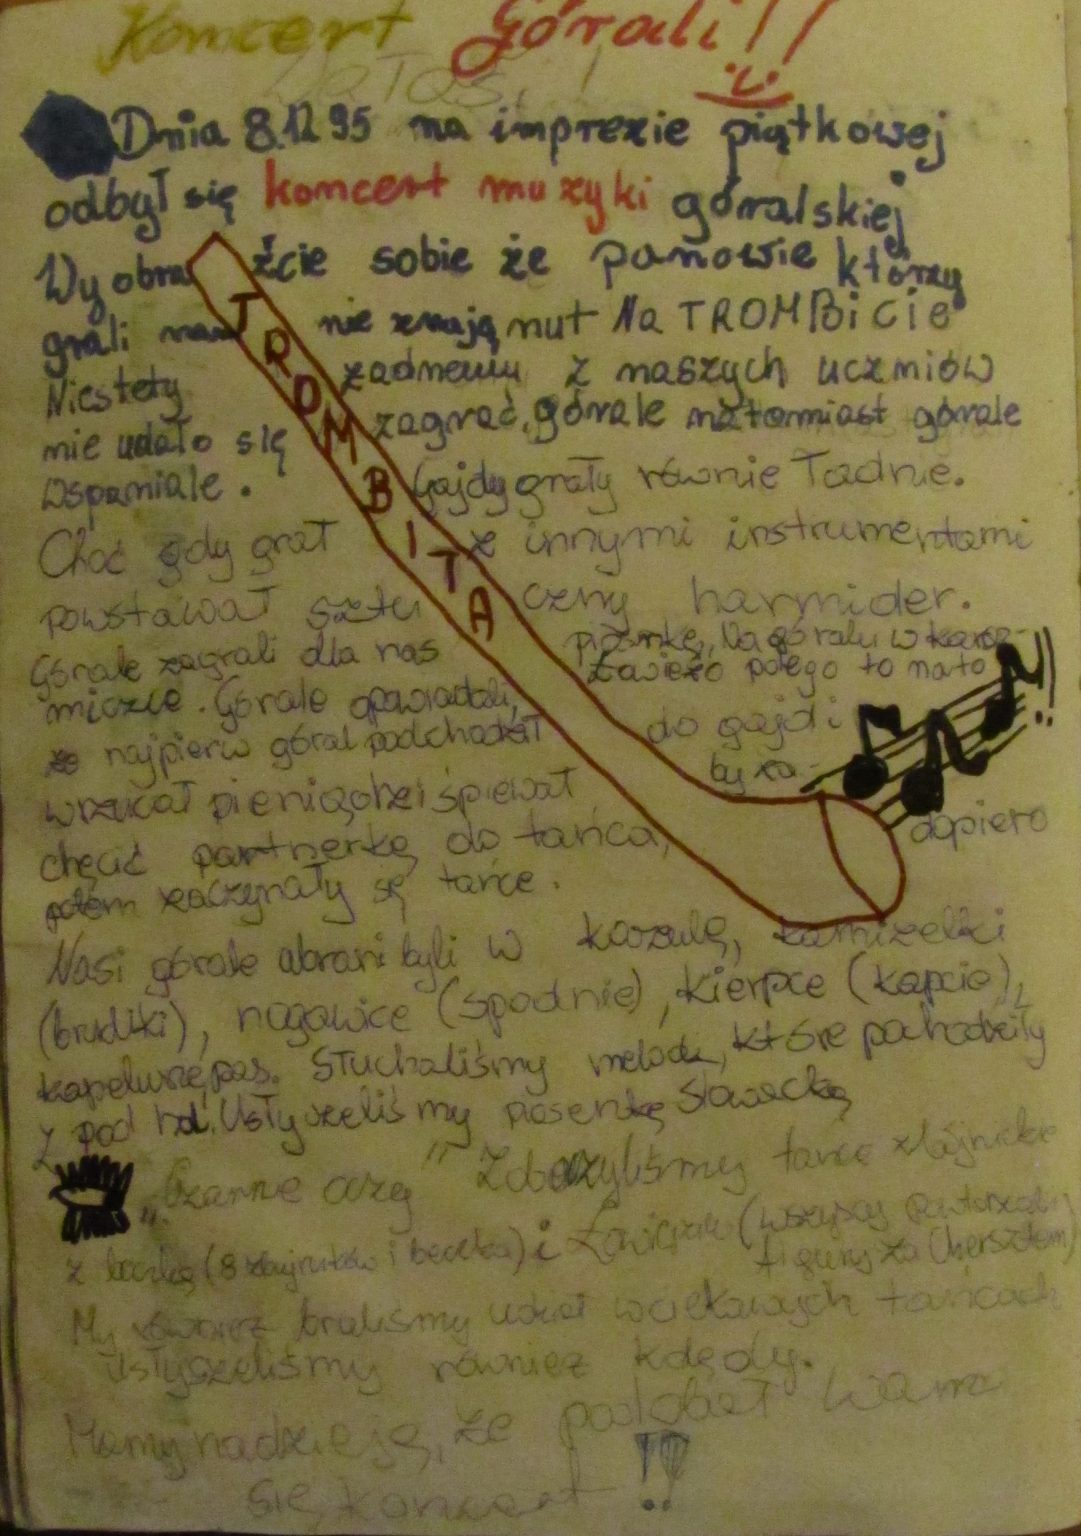 Koncert Górali!!
Dnia 8.12 95 na imprezie piątkowej
odbył się koncert muzyki góralskiej
Wyobraźcie sobie że panowie którzy
grali nam nie znają nut Na TROMBiCie
Niestety żadnemu z naszych uczniów
nie udało się zagrać, górale natomiast górale
wspaniale. Gajdy grały równie ładnie.
Choć gdy grał z innymi instrumentami
powstawał sztuczny harmider.
Górale zagrali dla nas piosnkę, Na góralu w karcz-
miczce. Górale opowiadali, polego to na to
że najpierw góral podchodził do gajdi
wrzucał pieniądze i śpiewał by za-
chęcić partnerkę do tańca, dopiero
potem zaczynały się tańce.
Nasi górale ubrani byli w koszulę, kamizelki
(brucliki), nogawice (spodnie), kierpce (kapcie),
kapelusze, pas. Słuchaliśmy melodi, które pochodziły
z pod hal. Usłyszeliśmy piosenkę słowacką
„Czarne oczy" Zobaczyliśmy tańce zbójnickie
z beczką (8 zbójników i beczka) i (wszyscy powtarzali
figury za Chersztem)
My również braliśmy udział w ciekawych tańcach
Usłyszeliśmy również kolędy.
Mamy nadzieję, że podobał wam
się koncert!!
TROMBITA